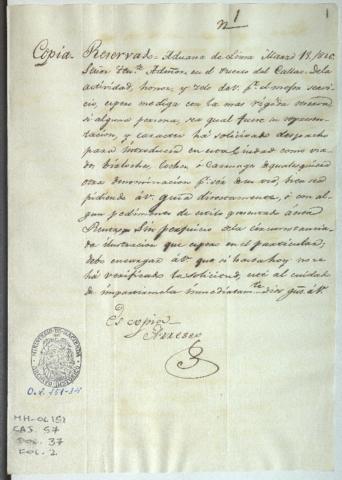 nº 1
1
Copia. Reservado = Aduana de Lima Marzo 18,, 1820.
Señor Ten.te Admor. en el Puerto del Callao = De la
actividad, honor, y zelo de V. p.r el mejor servi-
cio, espero me diga con la mas rigida reserva
si alguna persona, sea qual fuere su represen-
tacion, y caracter ha solicitado despacho
para introducir en esta Ciudad como
Birlocho, Coche, ó Carruage de qualesquiera
otra denominacion p.r ser de su uso, bien sea
pidiendo á V. guia directamente, ó con al-
gun pedimento de estilo presentado á esta
Renta = Sin perjuicio de la circunstancia-
da ilustracion que espero en el particular;
debo encargar á V. que si hasta hoy no se
ha verificado la solicitud, esté al cuidado
de impartirmela inmediatam.te Dios gue. á V.
Es copia
Arrese
MINISTERIO DE HACIENDA
O.L. 151-34
MH-OL 151
CAJ. 57
DOC. 37
FOL. 2